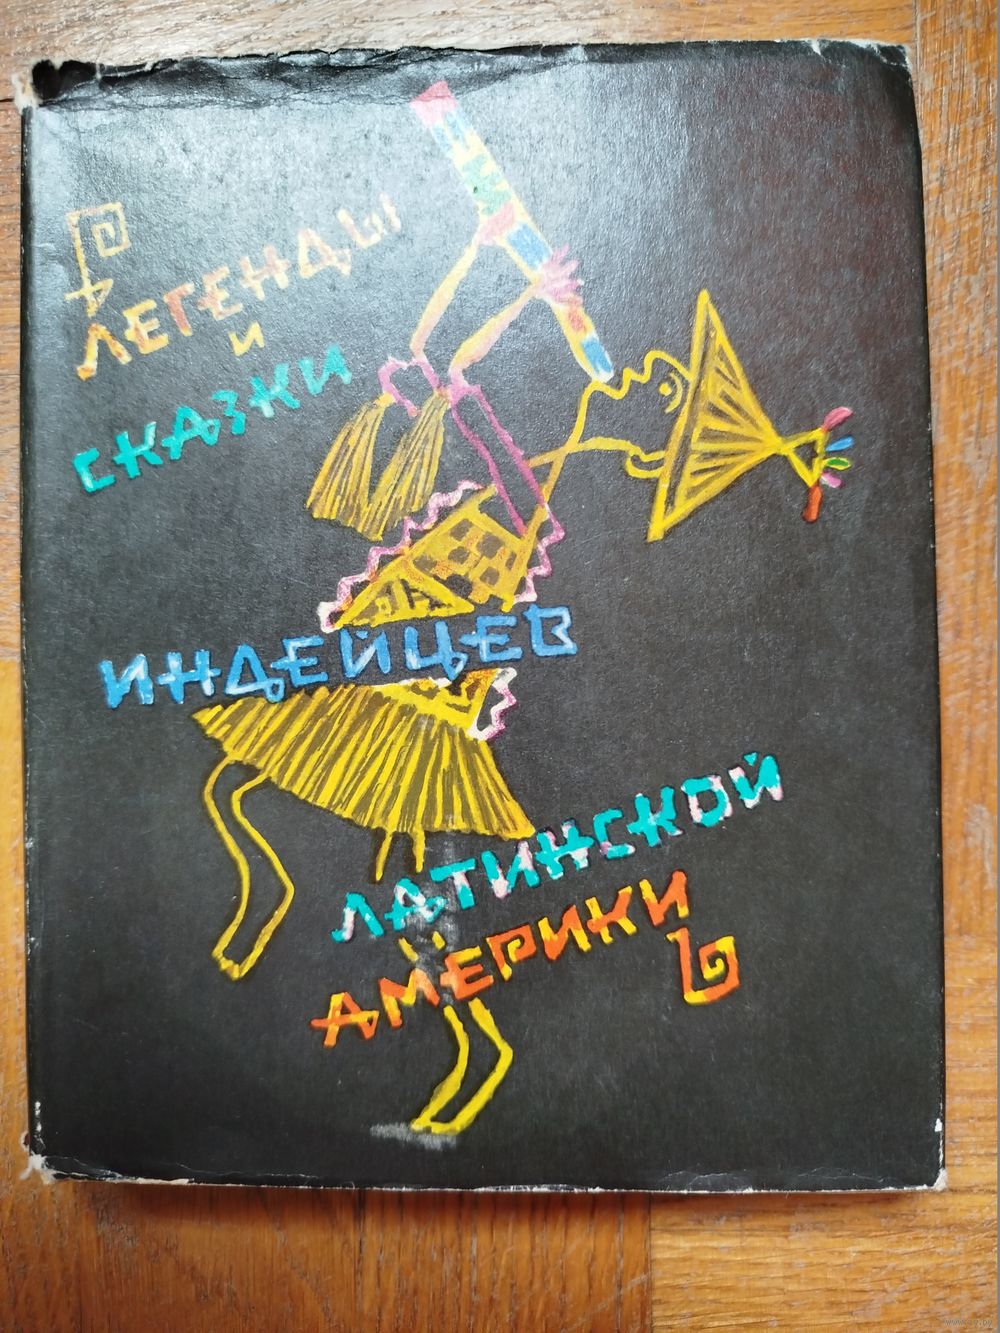 ЛЕГЕНДЫ
И
СКАЗКИ
ИНДЕЙЦЕВ
ЛАТИНСКОЙ
АМЕРИКИ